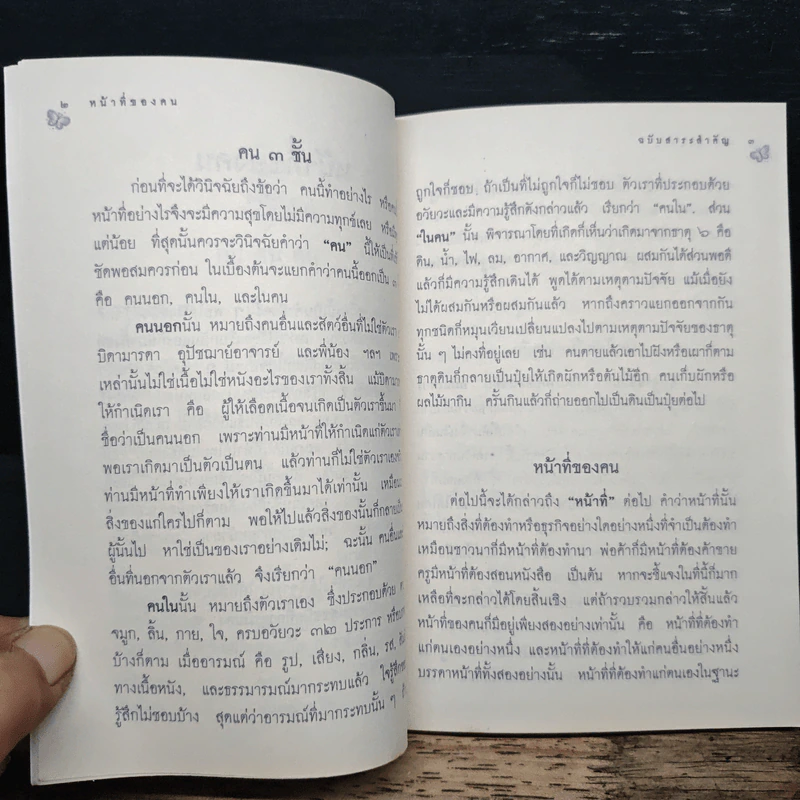 ๒ หน้าที่ของคน
คน ๓ ชั้น
ก่อนที่จะได้วินิจฉัยถึงข้อว่า คนนี้ทำอย่างไร
หน้าที่อย่างไรจึงจะมีความสุขโดยไม่มีความทุกข์เลย
แต่น้อย ที่สุดนั้นควรจะวินิจฉัยคำว่า “คน” นี้ให้เป็นที่
ชัดพอสมควรก่อน ในเบื้องต้นจะแยกคำว่าคนนี้ออกเป็น ๓
คือ คนนอก, คนใน, และในคน
คนนอกนั้น หมายถึงคนอื่นและสัตว์อื่นที่ไม่ใช่ตัวเรา
บิดามารดา อุปัชฌาย์อาจารย์ และพี่น้อง ฯลฯ
เหล่านั้นไม่ใช่เนื้อไม่ใช่หนังอะไรของเราทั้งสิ้น แม้บิดามารดา
ให้กำเนิดเรา คือ ผู้ให้เลือดเนื้อจนเกิดเป็นตัวเราขึ้นมา
ชื่อว่าเป็นคนนอก เพราะท่านมีหน้าที่ให้กำเนิดแก่ตัวเรา
พอเราเกิดมาเป็นตัวเป็นตน แล้วท่านก็ไม่ใช่ตัวเราเอง
ท่านมีหน้าที่ทำเพียงให้เราเกิดขึ้นมาได้เท่านั้น
สิ่งของแก่ใครไปก็ตาม พอให้ไปแล้วสิ่งของนั้นก็กลายเป็น
ผู้นั้นไป หาใช่เป็นของเราอย่างเดิมไม่; ฉะนั้น
อื่นที่นอกจากตัวเราแล้ว จึงเรียกว่า “คนนอก”
คนในนั้น หมายถึงตัวเราเอง ซึ่งประกอบด้วย
จมูก, ลิ้น, กาย, ใจ, ครบอวัยวะ ๓๒ ประการ
บ้างก็ตาม เมื่ออารมณ์ คือ รูป, เสียง, กลิ่น, รส,
ทางเนื้อหนัง, และธรรมารมณ์มากระทบแล้ว ใจรู้สึก
รู้สึกไม่ชอบบ้าง สุดแต่ว่าอารมณ์ที่มากระทบนั้น ๆ
ฉบับสาระสำคัญ ๓
ถูกใจก็ชอบ, ถ้าเป็นที่ไม่ถูกใจก็ไม่ชอบ ตัวเราที่ประกอบด้วย
อวัยวะและมีความรู้สึกดังกล่าวแล้ว เรียกว่า “คนใน”. ส่วน
“ในคน” นั้น พิจารณาโดยที่เกิดก็เห็นว่าเกิดมาจากธาตุ ๖ คือ
ดิน, น้ำ, ไฟ, ลม, อากาศ, และวิญญาณ ผสมกันได้ส่วนพอดี
แล้วก็มีความรู้สึกเดินได้ พูดได้ตามเหตุตามปัจจัย แม้เมื่อยัง
ไม่ได้ผสมกันหรือผสมกันแล้ว หากถึงคราวแยกออกจากกัน
ทุกชนิดก็หมุนเวียนเปลี่ยนแปลงไปตามเหตุตามปัจจัยของธาตุ
นั้น ๆ ไม่คงที่อยู่เลย เช่น คนตายแล้วเอาไปฝังหรือเผาก็ตาม
ธาตุดินก็กลายเป็นปุ๋ยให้เกิดผักหรือต้นไม้อีก คนเก็บผักหรือ
ผลไม้มากิน ครั้นกินแล้วก็ถ่ายออกไปเป็นดินเป็นปุ๋ยต่อไป
หน้าที่ของคน
ต่อไปนี้จะได้กล่าวถึง “หน้าที่” ต่อไป คำว่าหน้าที่นั้น
หมายถึงสิ่งที่ต้องทำหรือธุรกิจอย่างใดอย่างหนึ่งที่จำเป็นต้องทำ
เหมือนชาวนาก็มีหน้าที่ต้องทำนา พ่อค้าก็มีหน้าที่ต้องค้าขาย
ครูมีหน้าที่ต้องสอนหนังสือ เป็นต้น หากจะชี้แจงในที่นี้ก็มาก
เหลือที่จะกล่าวได้โดยสิ้นเชิง แต่ถ้ารวบรวมกล่าวให้สิ้นแล้ว
หน้าที่ของคนก็มีอยู่เพียงสองอย่างเท่านั้น คือ หน้าที่ที่ต้องทำ
แก่ตนเองอย่างหนึ่ง และหน้าที่ที่ต้องทำให้แก่คนอื่นอย่างหนึ่ง
บรรดาหน้าที่ทั้งสองอย่างนั้น หน้าที่ที่ต้องทำแก่ตนเองในฐานะ